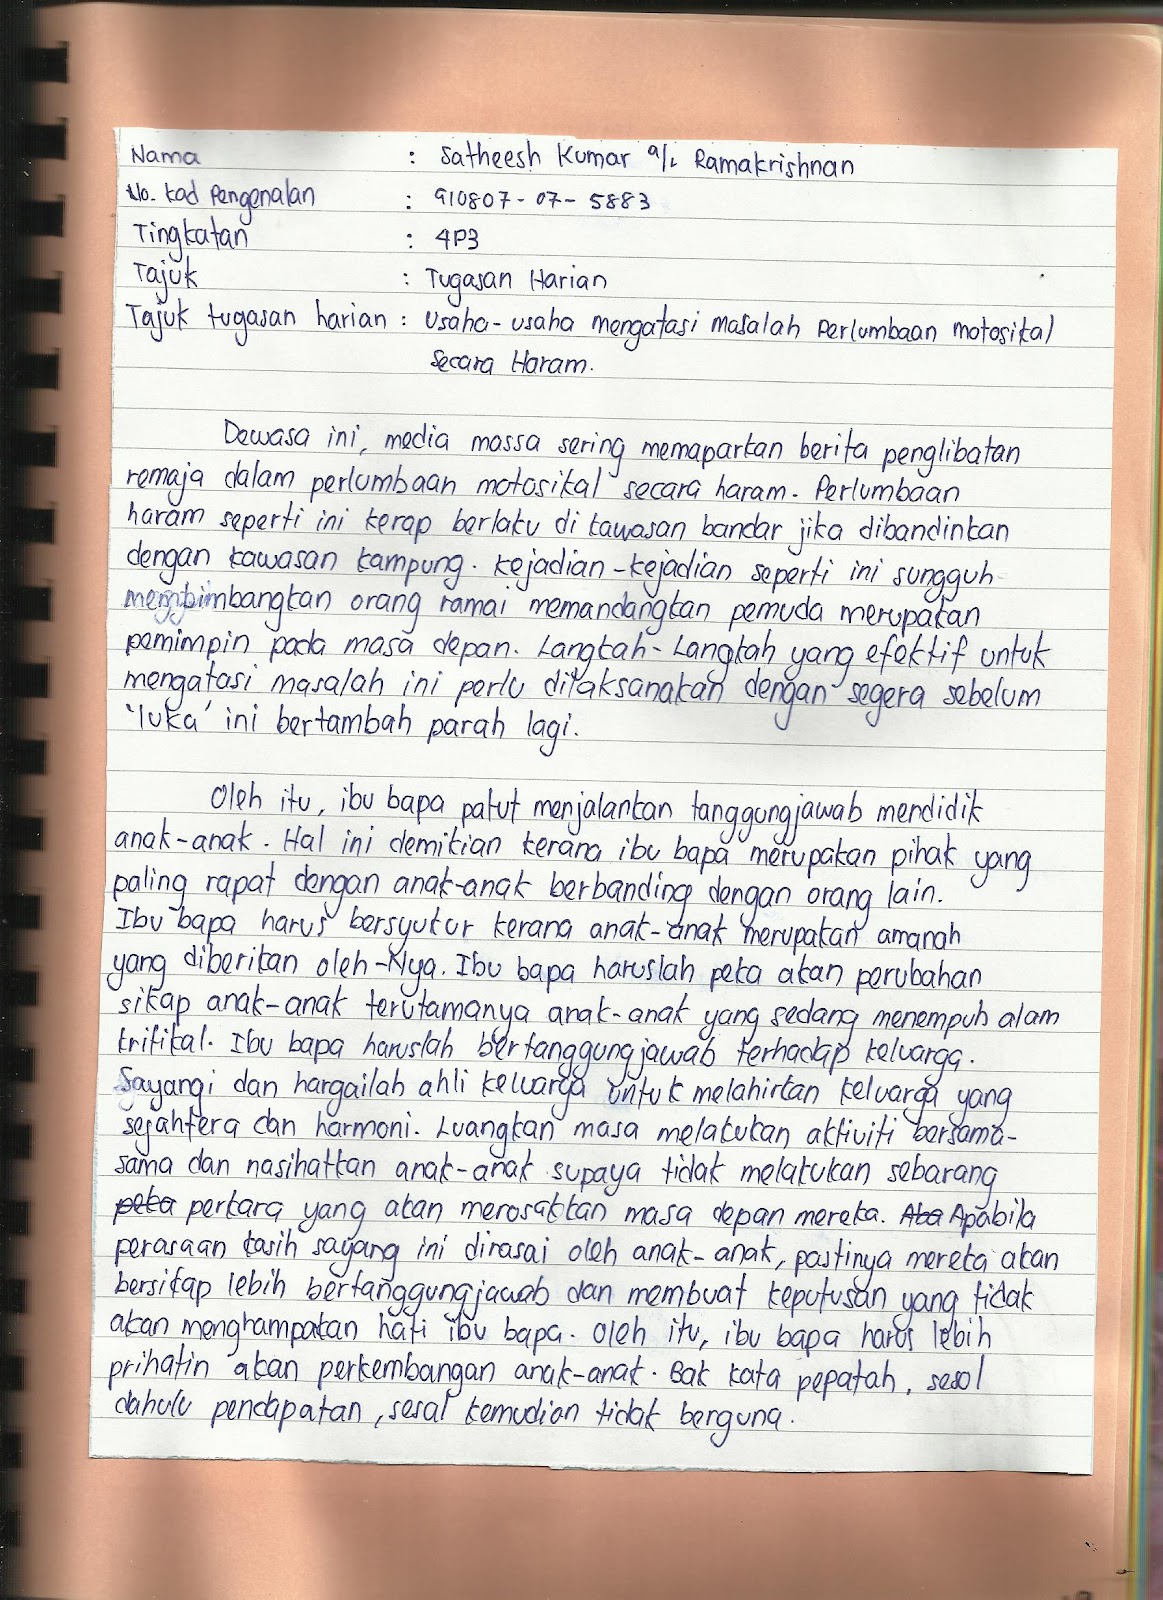 Nama : Satheesh Kumar a/l Ramakrishnan
No. Kad Pengenalan : 910807-07-5883
Tingkatan : 4P3
Tajuk : Tugasan Harian
Tajuk tugasan harian : Usaha-usaha mengatasi masalah Perlumbaan motosikal
Secara Haram.
Dewasa ini, media massa sering memaparkan berita penglibatan
remaja dalam perlumbaan motosikal secara haram. Perlumbaan
haram seperti ini kerap berlaku di kawasan bandar jika dibandinkan
dengan kawasan kampung. Kejadian-kejadian seperti ini sungguh
membimbangkan orang ramai memandangkan pemuda merupakan
pemimpin pada masa depan. Langkah-Langkah yang efektif untuk
mengatasi masalah ini perlu dilaksanakan dengan segera sebelum
'luka' ini bertambah parah lagi.
Oleh itu, ibu bapa patut menjalankan tanggungjawab mendidik
anak-anak. Hal ini demikian kerana ibu bapa merupakan pihak yang
paling rapat dengan anak-anak berbanding dengan orang lain.
Ibu bapa harus bersyukur kerana anak-anak merupakan amanah
yang diberikan oleh-Nya. Ibu bapa haruslah peka akan perubahan
sikap anak-anak terutamanya anak-anak yang sedang menempuh alam
kritikal. Ibu bapa haruslah bertanggungjawab terhadap keluarga.
Sayangi dan hargailah ahli keluarga untuk melahirkan keluarga yang
sejahtera dan harmoni. Luangkan masa melakukan aktiviti bersama-
sama dan nasihatkan anak-anak supaya tidak melakukan sebarang
peka perkara yang akan merosakkan masa depan mereka. Aba Apabila
perasaan kasih sayang ini dirasai oleh anak-anak, pastinya mereka akan
bersikap lebih bertanggungjawab dan membuat keputusan yang tidak
akan menghampakan hati ibu bapa. Oleh itu, ibu bapa harus lebih
prihatin akan perkembangan anak-anak. Bak kata pepatah, sesal
dahulu pendapatan, sesal kemudian tidak berguna.